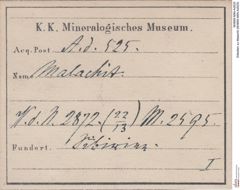 K. K. Mineralogisches Museum.
Acq. Post A.d. 525.
Name Malachit.
V.d.N. 2872. (22/13) M. 2595.
Fundort. Sibirien.
I